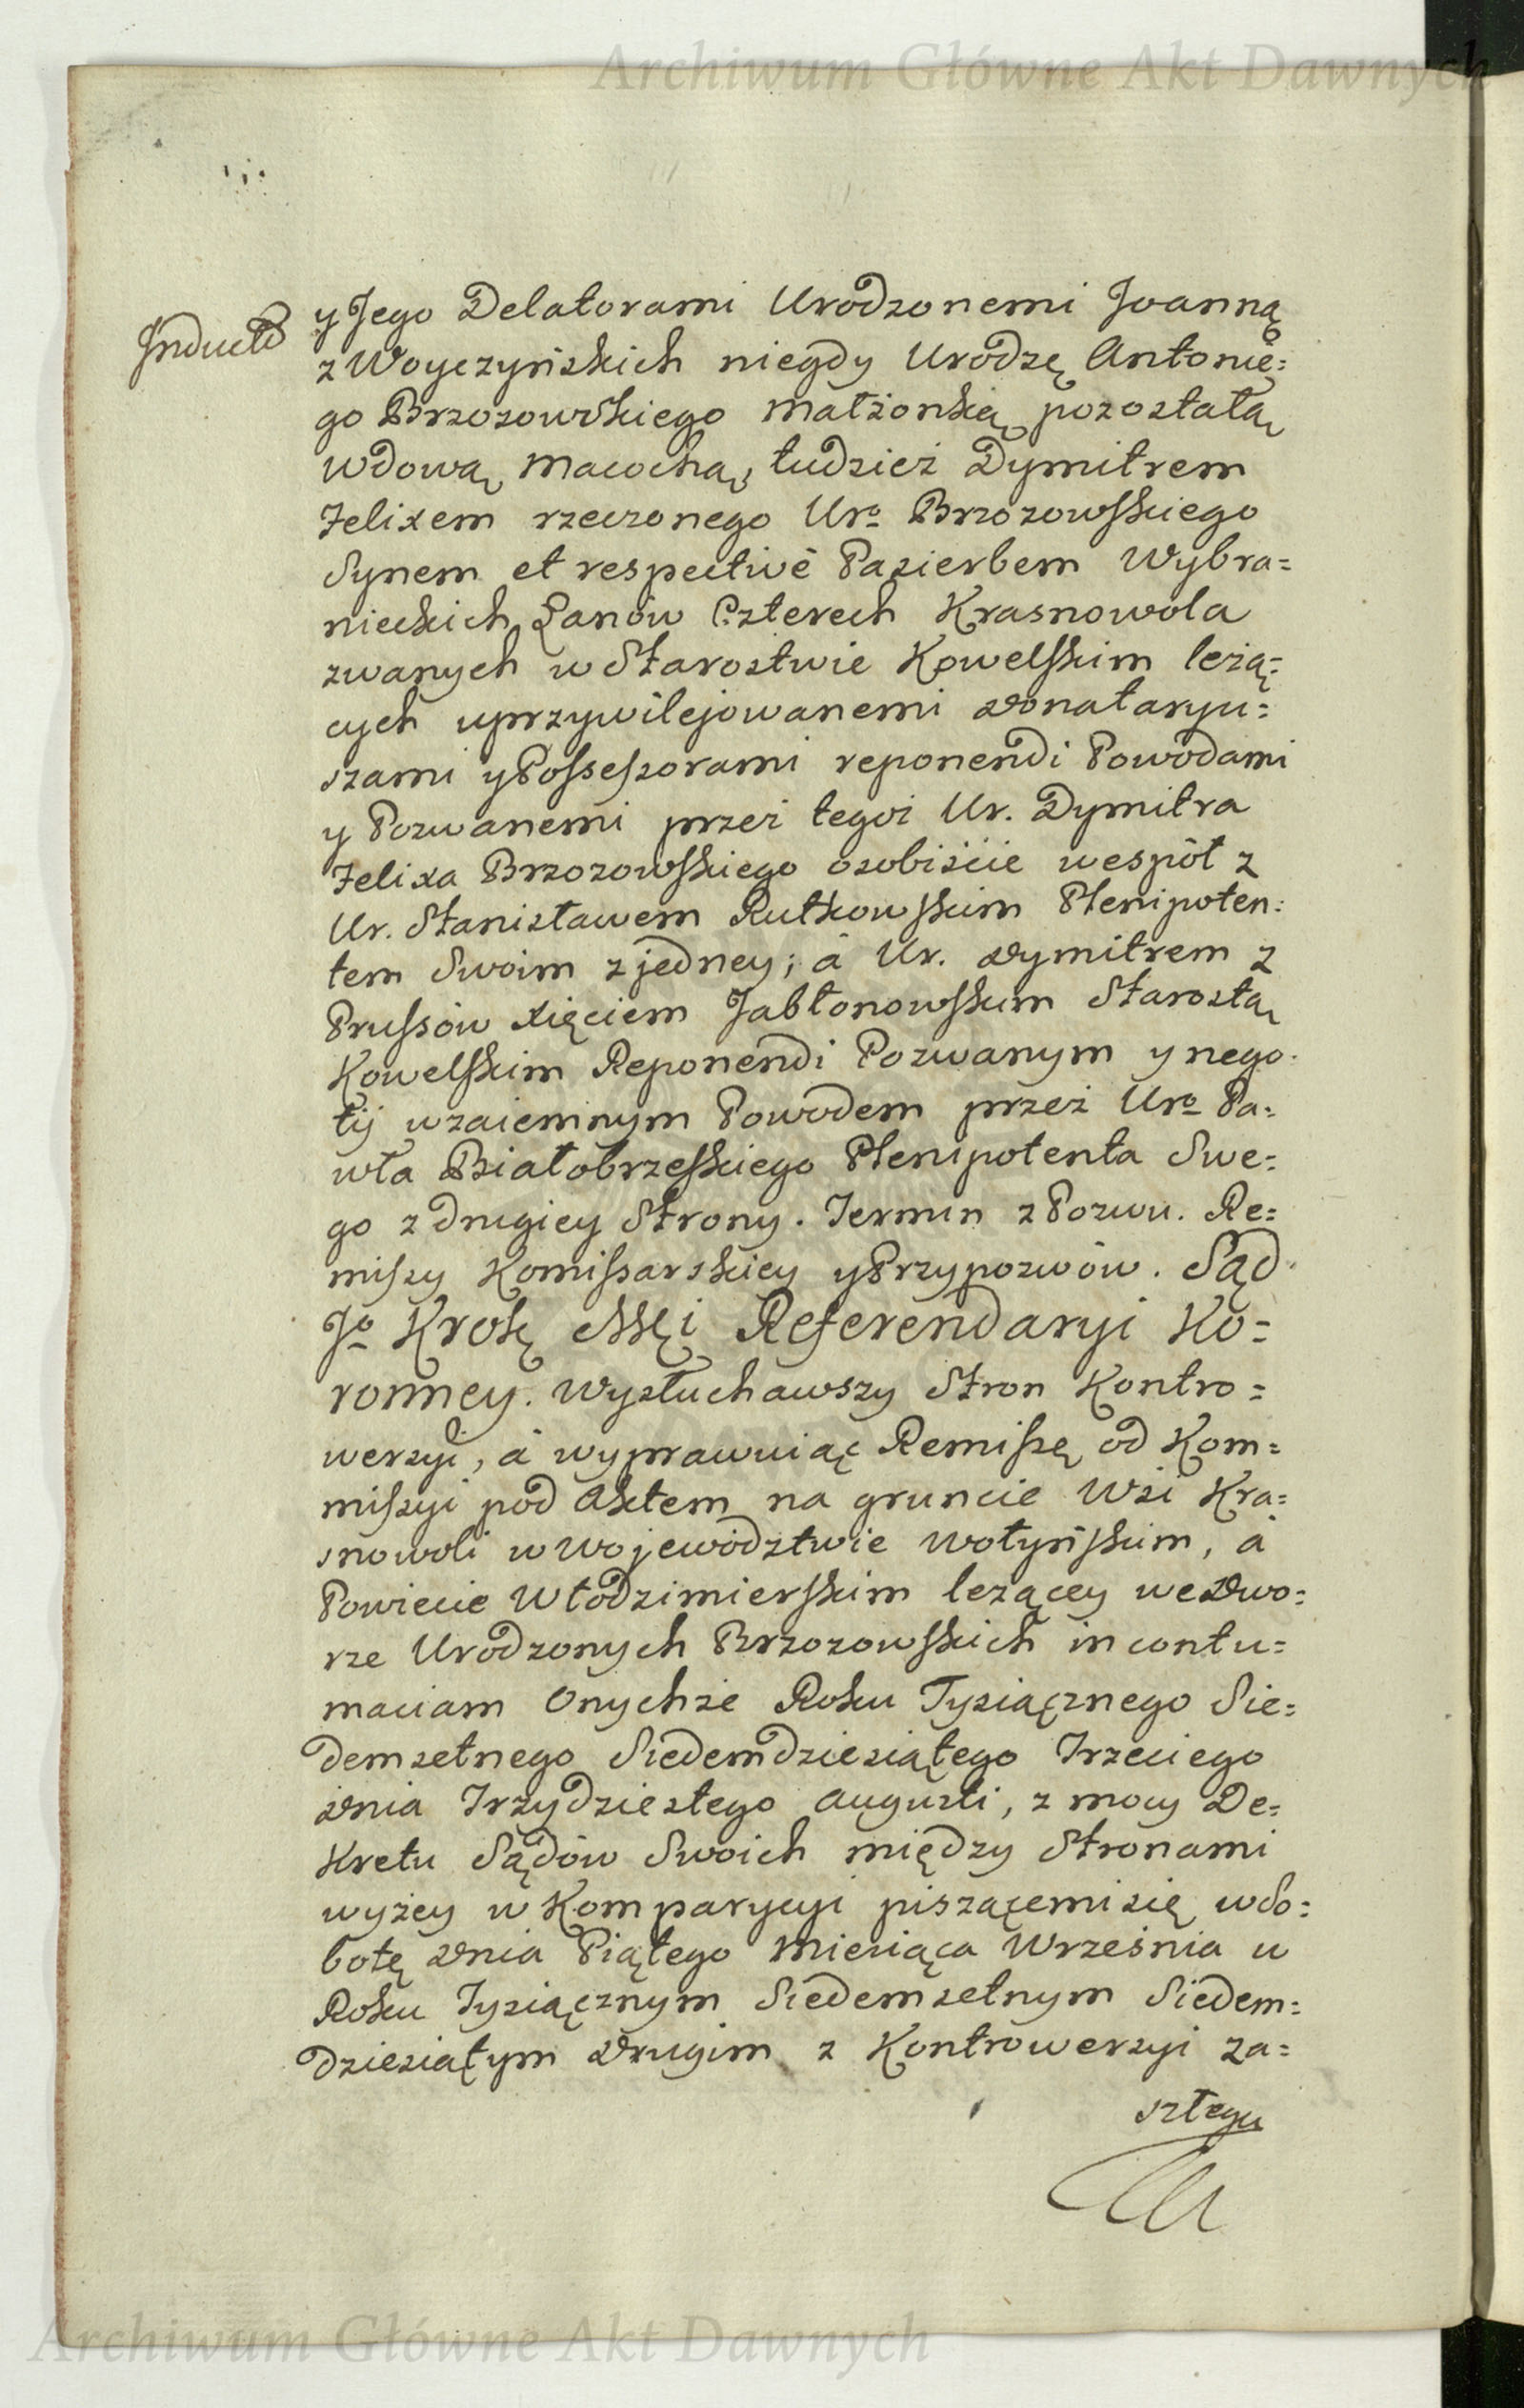 Archiwum Główne Akt Dawnych
Inducto
y Jego Delatorami Urodzonemi Joanną
z Woyczyńskich niegdy Urodzę Antonie=
go Brzozowskiego małżonką pozostałą
wdową macochą, tudzież Dymitrem
Felixem rzeczonego Uro Brzozowskiego
Synem et respectivè Pasierbem Wybra=
nieckich Łanów Czterech Krasnowola
zwanych w Starostwie Kowelskim leżą=
cych uprzywilejowanemi Donataryu=
szami y Possessorami reponendi Powodami
y Pozwanemi przez tegoż Ur. Dymitra
Felixa Brzozowskiego osobiście wespół z
Ur. Stanisławem Rutkowskim Plenipoten=
tem Swoim z jedney; à Ur. Dymitrem z
Prussów Xięciem Jabłonowskim Starostą
Kowelskim Reponendi Pozwanym y nego
tij wzaiemnym Powodem przez Uro Pa=
wła Białobrzeskiego Plenipotenta Swe=
go z drugiey Strony. Termin z Pozwu. Re=
missy Komissarskiey y Przypozwów. Sąd
Jo Krolę Msći Referendaryi Ko=
ronney. Wysłuchawszy Stron Kontro=
wersyi, à wyprawuiąc Remissę od Kom=
missyi pod Aktem na gruncie Wsi Kra=
snowoli w Województwie Wołyńskim, à
Powiecie Włodzimierskim leżącey we Dwo=
rze Urodzonych Brzozowskich in contu=
maciam Onychże Roku Tysiącznego Sie=
demsetnego Siedemdziesiątego Trzeciego
Dnia Trzydziestego Augusti, z mocy De=
kretu Sądów Swoich między Stronami
wyżey w Komparycyi piszącemi się w So=
botę Dnia Piątego Miesiąca Września w
Roku Tysiącznym Siedemsetnym Siedem=
dziesiątym Drugim z Kontrowersyi za=
szłego
Archiwum Główne Akt Dawnych